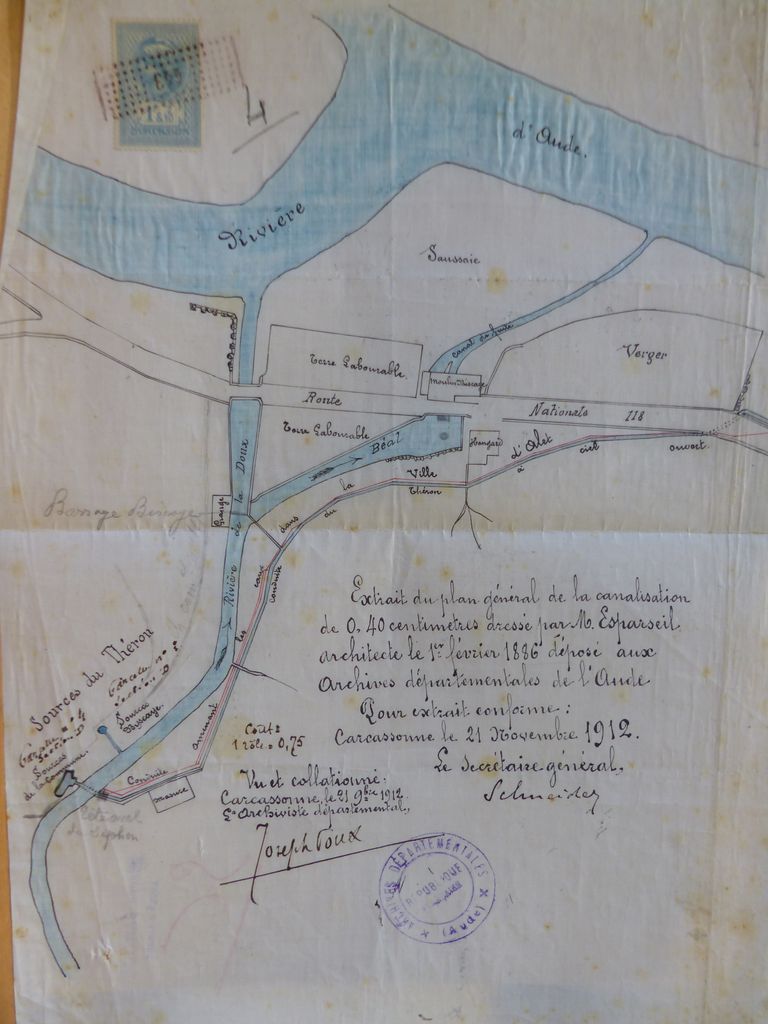 H
d'Aude.
Rivière
Saussaie
canal de fuite
Verger
Terre Labourable.
Moulin Bissaye
Route
Nationale 118
Terre Labourable
Béal
Hangard
Ville d'Alet
à ciel ouvert.
Conduite amenant les eaux dans la
conduite du Théron
Rivière de la Doux
Grange
Barrage
Sources du Théron
Sources
Sources
de la Commune.
Masure
Coût:
1 rôle = 0,75
Extrait du plan général de la canalisation
de 0,40 centimètres dressé par M. Esparseil
architecte le 1er février 1886 déposé aux
Archives départementales de l'Aude
Pour extrait conforme:
Carcassonne le 21 Novembre 1912.
Le Secrétaire général,
Schneider
Vu et collationné:
Carcassonne, le 21 9bre 1912
L'Archiviste départemental,
Joseph Poux
ARCHIVES DÉPARTEMENTALES
(Aude)